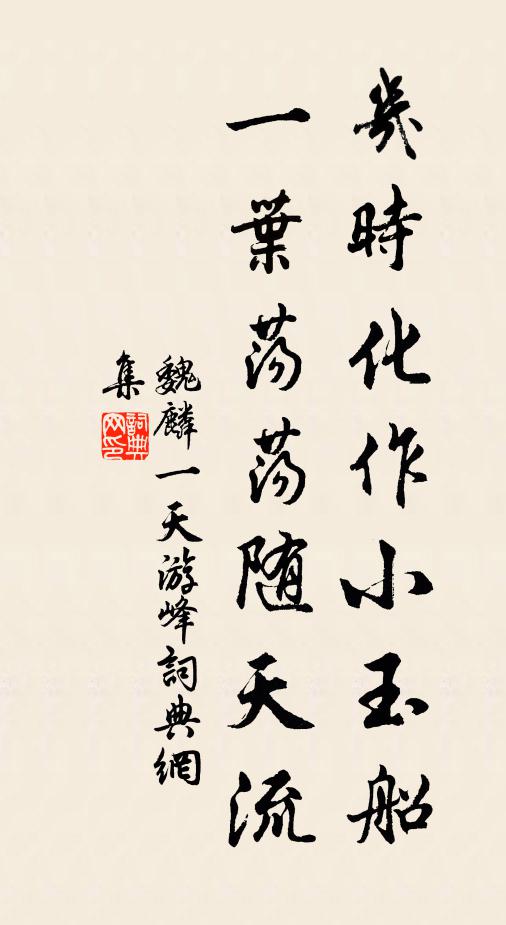 幾時化作小玉船
一葉荡荡随天流
魏麟一天游峰詞典網
集
詞典网印